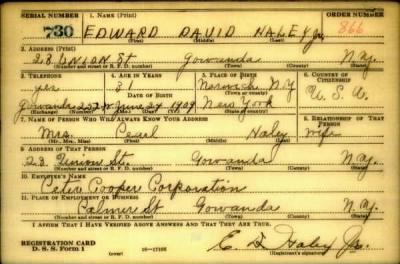 SERIAL NUMBER 1. NAME (Print) ORDER NUMBER
730 EDWARD DAVID HALEY Jr. 866
(First) (Middle) (Last)
2. ADDRESS (Print)
23 UNION St. Gowanda N.Y.
(Number and street or R. F. D. number) (Town) (County) (State)
3. TELEPHONE 4. AGE IN YEARS 5. PLACE OF BIRTH 6. COUNTRY OF CITIZENSHIP
yes 31 Norwich N.Y
DATE OF BIRTH U.S.A.
Gowanda June 24 1909 New York
7. NAME OF PERSON WHO WILL ALWAYS KNOW YOUR ADDRESS 8. RELATIONSHIP OF THAT PERSON
Mrs. Pearl Haley wife
(Mr., Mrs., Miss) (First) (Middle) (Last)
9. ADDRESS OF THAT PERSON
23 Union St. Gowanda N.Y.
(Number and street or R. F. D. number) (Town) (County) (State)
10. EMPLOYER'S NAME
Cooper Corporation
11. PLACE OF EMPLOYMENT OR BUSINESS
Palmer St Gowanda N.Y.
(Number and street or R. F. D. number) (Town) (County) (State)
I AFFIRM THAT I HAVE VERIFIED ABOVE ANSWERS AND THAT THEY ARE TRUE.
REGISTRATION CARD
D. S. S. Form 1 16—17105 E. D. Haley Jr.
(Registrant's signature)